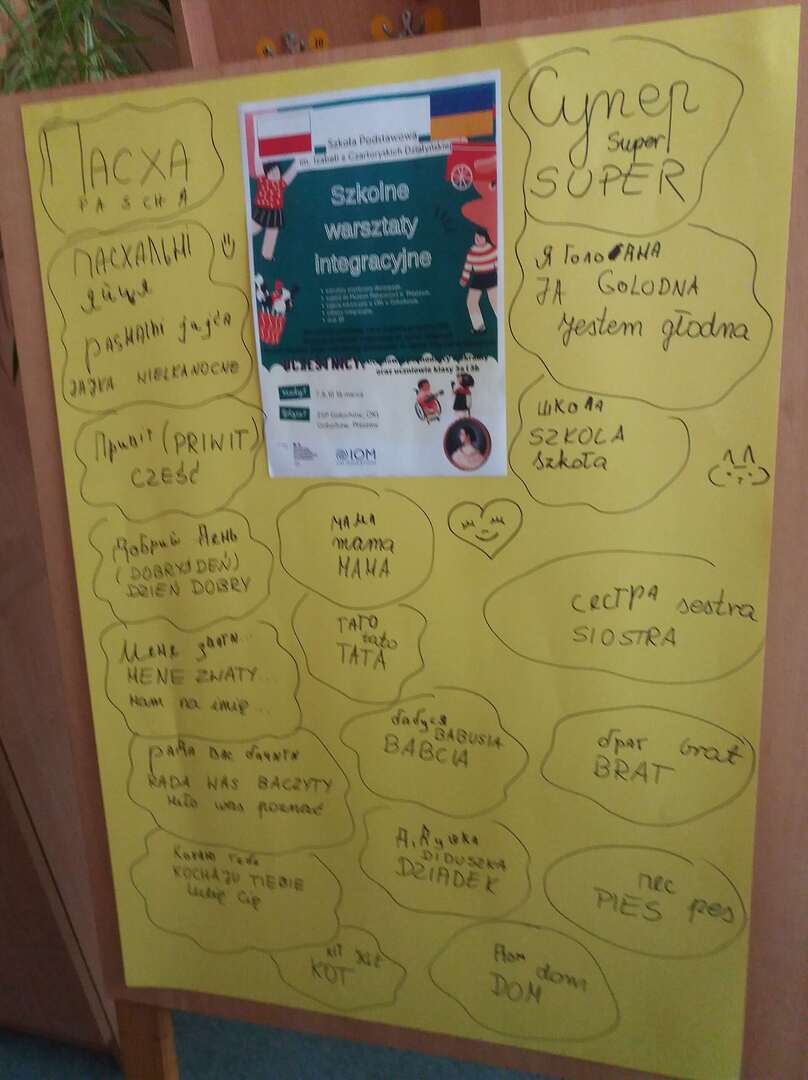 ПАСХА
PASCHA
ПАСХАЛЬНІ
яйця
pasHAlni jajca
JAJKA WIELKANOCNE
Привіт (PRIWIT)
CZEŚĆ
Добрий День
(DOBRYJ DEŃ)
DZIEŃ DOBRY
Мене звати...
MENE ZWATY...
Mam na imię...
рада вас бачити
RADA WAS BACZYTY
Miło was poznać
Кохаю тебе
KOCHAJU TIEBIE
Lubię Cię
Szkoła Podstawowa
im. Izabeli z Czartoryskich Działyńskiej
Szkolne
warsztaty
integracyjne
UCZESTNICY:
oraz uczniowie klasy
Kiedy?
marca
Gdzie?
Gołuchów, Pleszew
IOM
МАМА
mama
MAMA
ТАТО
tato
TATA
бабуся
BABUSIA
BABCIA
DIDUSZKA
DZIADEK
кіт
KOT
Дом dom
DOM
Супер
Super
SUPER
Я ГолоДНА
JA GOLODNA
Jestem głodna
ШКОЛА
SZKOLA
Szkoła
СЕСТРА sestra
SIOSTRA
брат brat
BRAT
ПЕС
PIES pes